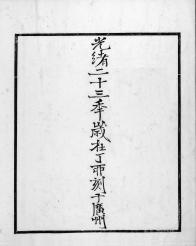 光緒二十三年歲在丁酉刻于廣州